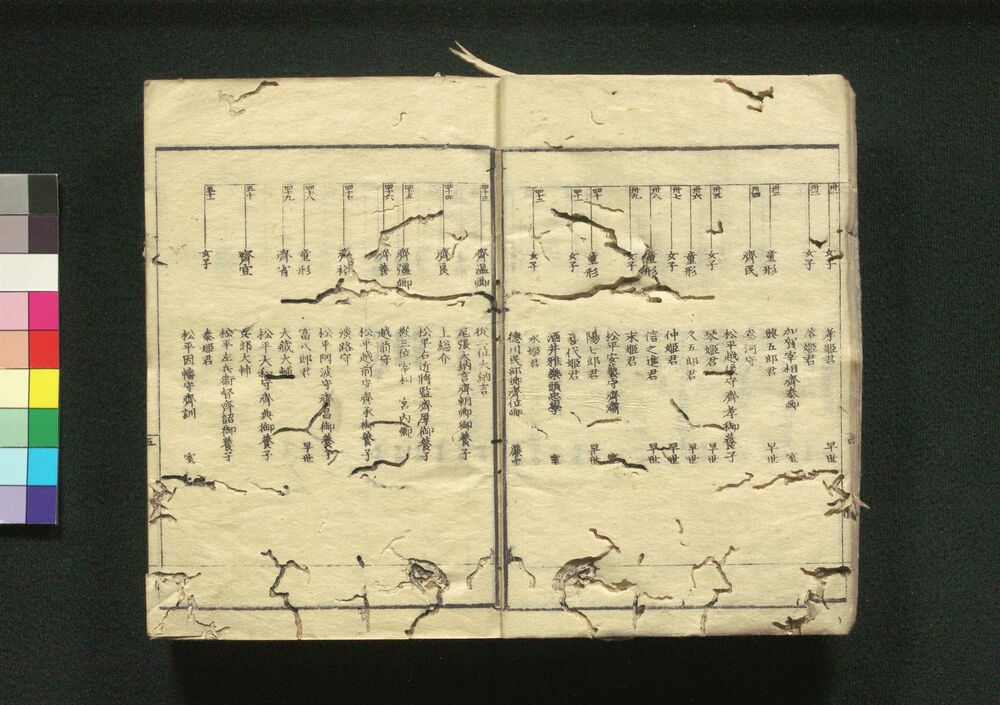 卅一 女子 孝姫君 早世
卅二 女子 溶姫君
加賀宰相齊泰卿 室
卅三 童形 興五郎君 早世
卅四 齊民 参河守
松平越後守齊孝御養子
卅五 女子 琴姫君 早世
卅六 童形 久五郎君 早世
卅七 女子 仲姫君 早世
卅八 童形 信之進君 早世
卅九 女子 末姫君
松平安藝守齊肅 室
四十 童形 陽七郎君 早世
四十一 女子 喜代姫君
酒井雅樂頭忠學 室
四十二 女子 永姫君
徳川民部卿齊位卿 簾中
四十三 齊温卿 從二位大納言
尾張大納言齊朝卿御養子
四十四 齊良 上総介
松平右近將監齊厚御養子
四十五 齊彊卿 從三位宰相 宮内卿
四十六 齊善 越前守
松平越前守齊承御養子
四十七 齊裕 淡路守
松平阿波守齊昌御養子
四十八 童形 富八郎君
四十九 齊省 大藏大輔
松平大和守齊典御養子
五十 齊宣 兵部大輔
松平左兵衛督齊韶御養子
五十一 女子 泰姫君
松平因幡守齊訓 室
五